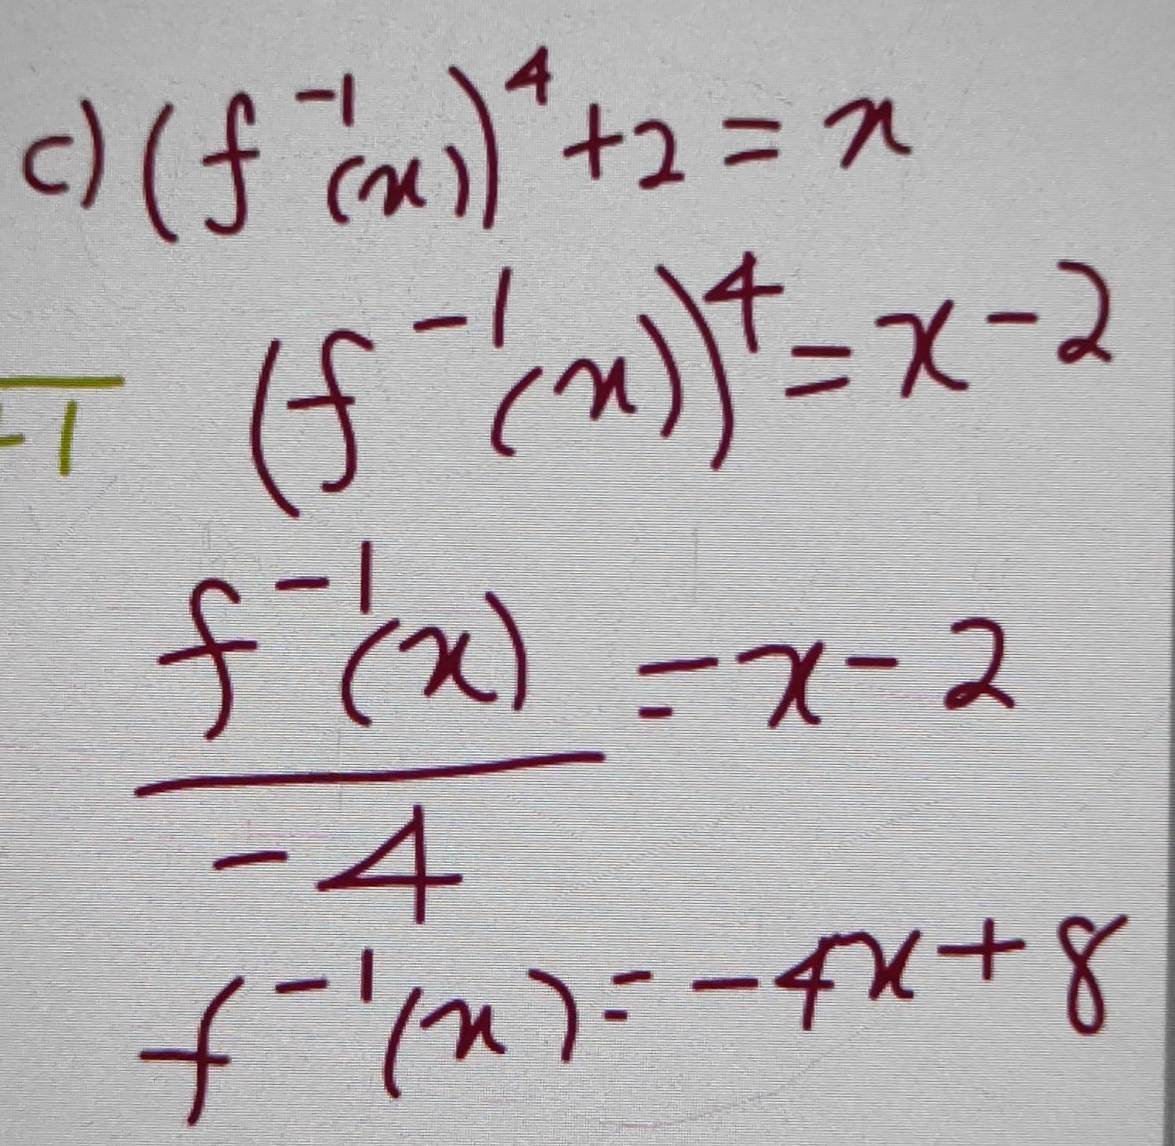 c) (f⁻¹(x))⁴ + 2 = x
(f⁻¹(x))⁴ = x - 2
-1
f⁻¹(x) / -4 = x - 2
f⁻¹(x) = -4x + 8